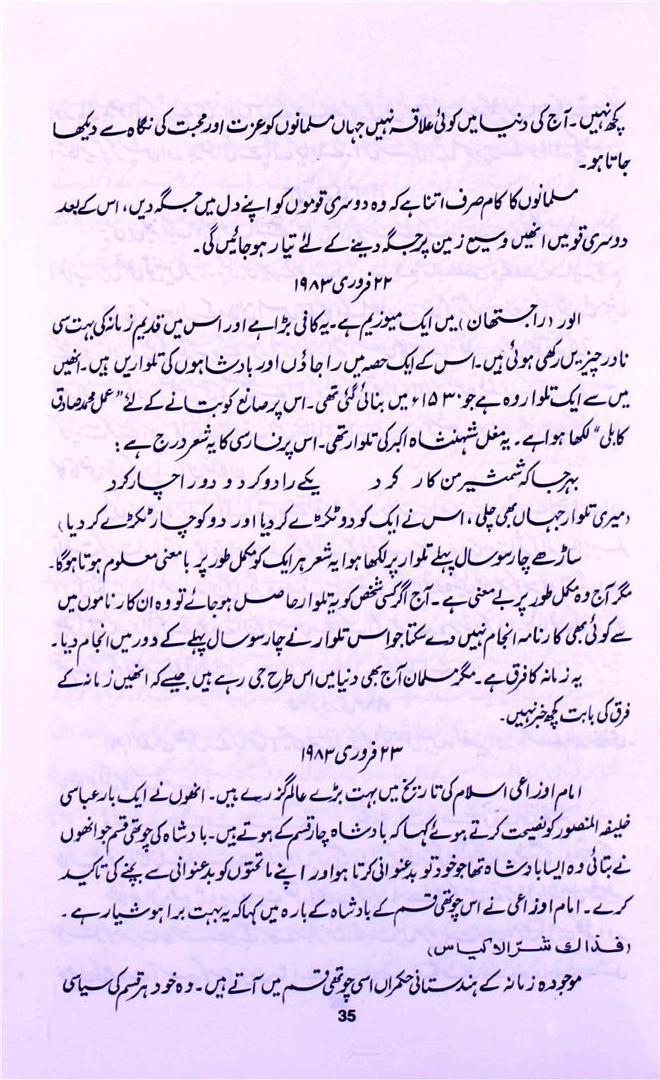 کچھ نہیں۔ آج کی دنیا میں کوئی علاقہ نہیں جہاں مسلمانوں کو عزت اور محبت کی نگاہ سے دیکھا
جاتا ہو۔
مسلمانوں کا کام صرف اتنا ہے کہ وہ دوسری قوموں کو اپنے دل میں جگہ دیں، اس کے بعد
دوسری قومیں انھیں وسیع زمین پر جگہ دینے کے لئے تیار ہو جائیں گی۔
۲۲ فروری ۱۹۸۳
الور (راجستھان) میں ایک میوزیم ہے۔ یہ کافی بڑا ہے اور اس میں قدیم زمانہ کی بہت سی
نادر چیزیں رکھی ہوئی ہیں۔ اس کے ایک حصہ میں راجاؤں اور بادشاہوں کی تلواریں ہیں۔ انھیں
میں سے ایک تلوار وہ ہے جو ۱۵۳۰ء میں بنائی گئی تھی۔ اس پر صانع کو بتانے کے لئے "عمل محمد صادق
کابلی" لکھا ہوا ہے۔ یہ مغل شہنشاہ اکبر کی تلوار تھی۔ اس پر فارسی کا یہ شعر درج ہے :
بہر جا کہ شمشیر من کار کرد یکے را دو کرد و دو را چار کرد
(میری تلوار جہاں بھی چلی، اس نے ایک کو دو ٹکڑے کر دیا اور دو کو چار ٹکڑے کر دیا)
ساڑھے چار سو سال پہلے تلوار پر لکھا ہوا یہ شعر ہر ایک کو مکمل طور پر بامعنی معلوم ہوتا ہوگا۔
مگر آج وہ مکمل طور پر بے معنی ہے۔ آج اگر کسی شخص کو یہ تلوار حاصل ہو جائے تو وہ ان کارناموں میں
سے کوئی بھی کارنامہ انجام نہیں دے سکتا جو اس تلوار نے چار سو سال پہلے کے دور میں انجام دیا۔
یہ زمانہ کا فرق ہے۔ مگر مسلمان آج بھی دنیا میں اس طرح جی رہے ہیں جیسے کہ انھیں زمانہ کے
فرق کی بابت کچھ خبر نہیں۔
۲۳ فروری ۱۹۸۳
امام اوزاعی اسلام کی تاریخ میں بہت بڑے عالم گزرے ہیں۔ انھوں نے ایک بار عباسی
خلیفہ المنصور کو نصیحت کرتے ہوئے کہا کہ بادشاہ چار قسم کے ہوتے ہیں۔ بادشاہ کی چوتھی قسم جو انھوں
نے بتائی وہ ایسا بادشاہ تھا جو خود تو بدعنوانی کرتا ہو اور اپنے ماتحتوں کو بدعنوانی سے بچنے کی تاکید
کرے۔ امام اوزاعی نے اس چوتھی قسم کے بادشاہ کے بارہ میں کہا کہ یہ بہت برا ہوشیار ہے۔
(فذاك شر الاكياس)
موجودہ زمانہ کے ہندستانی حکمراں اسی چوتھی قسم میں آتے ہیں۔ وہ خود ہر قسم کی سیاسی
35